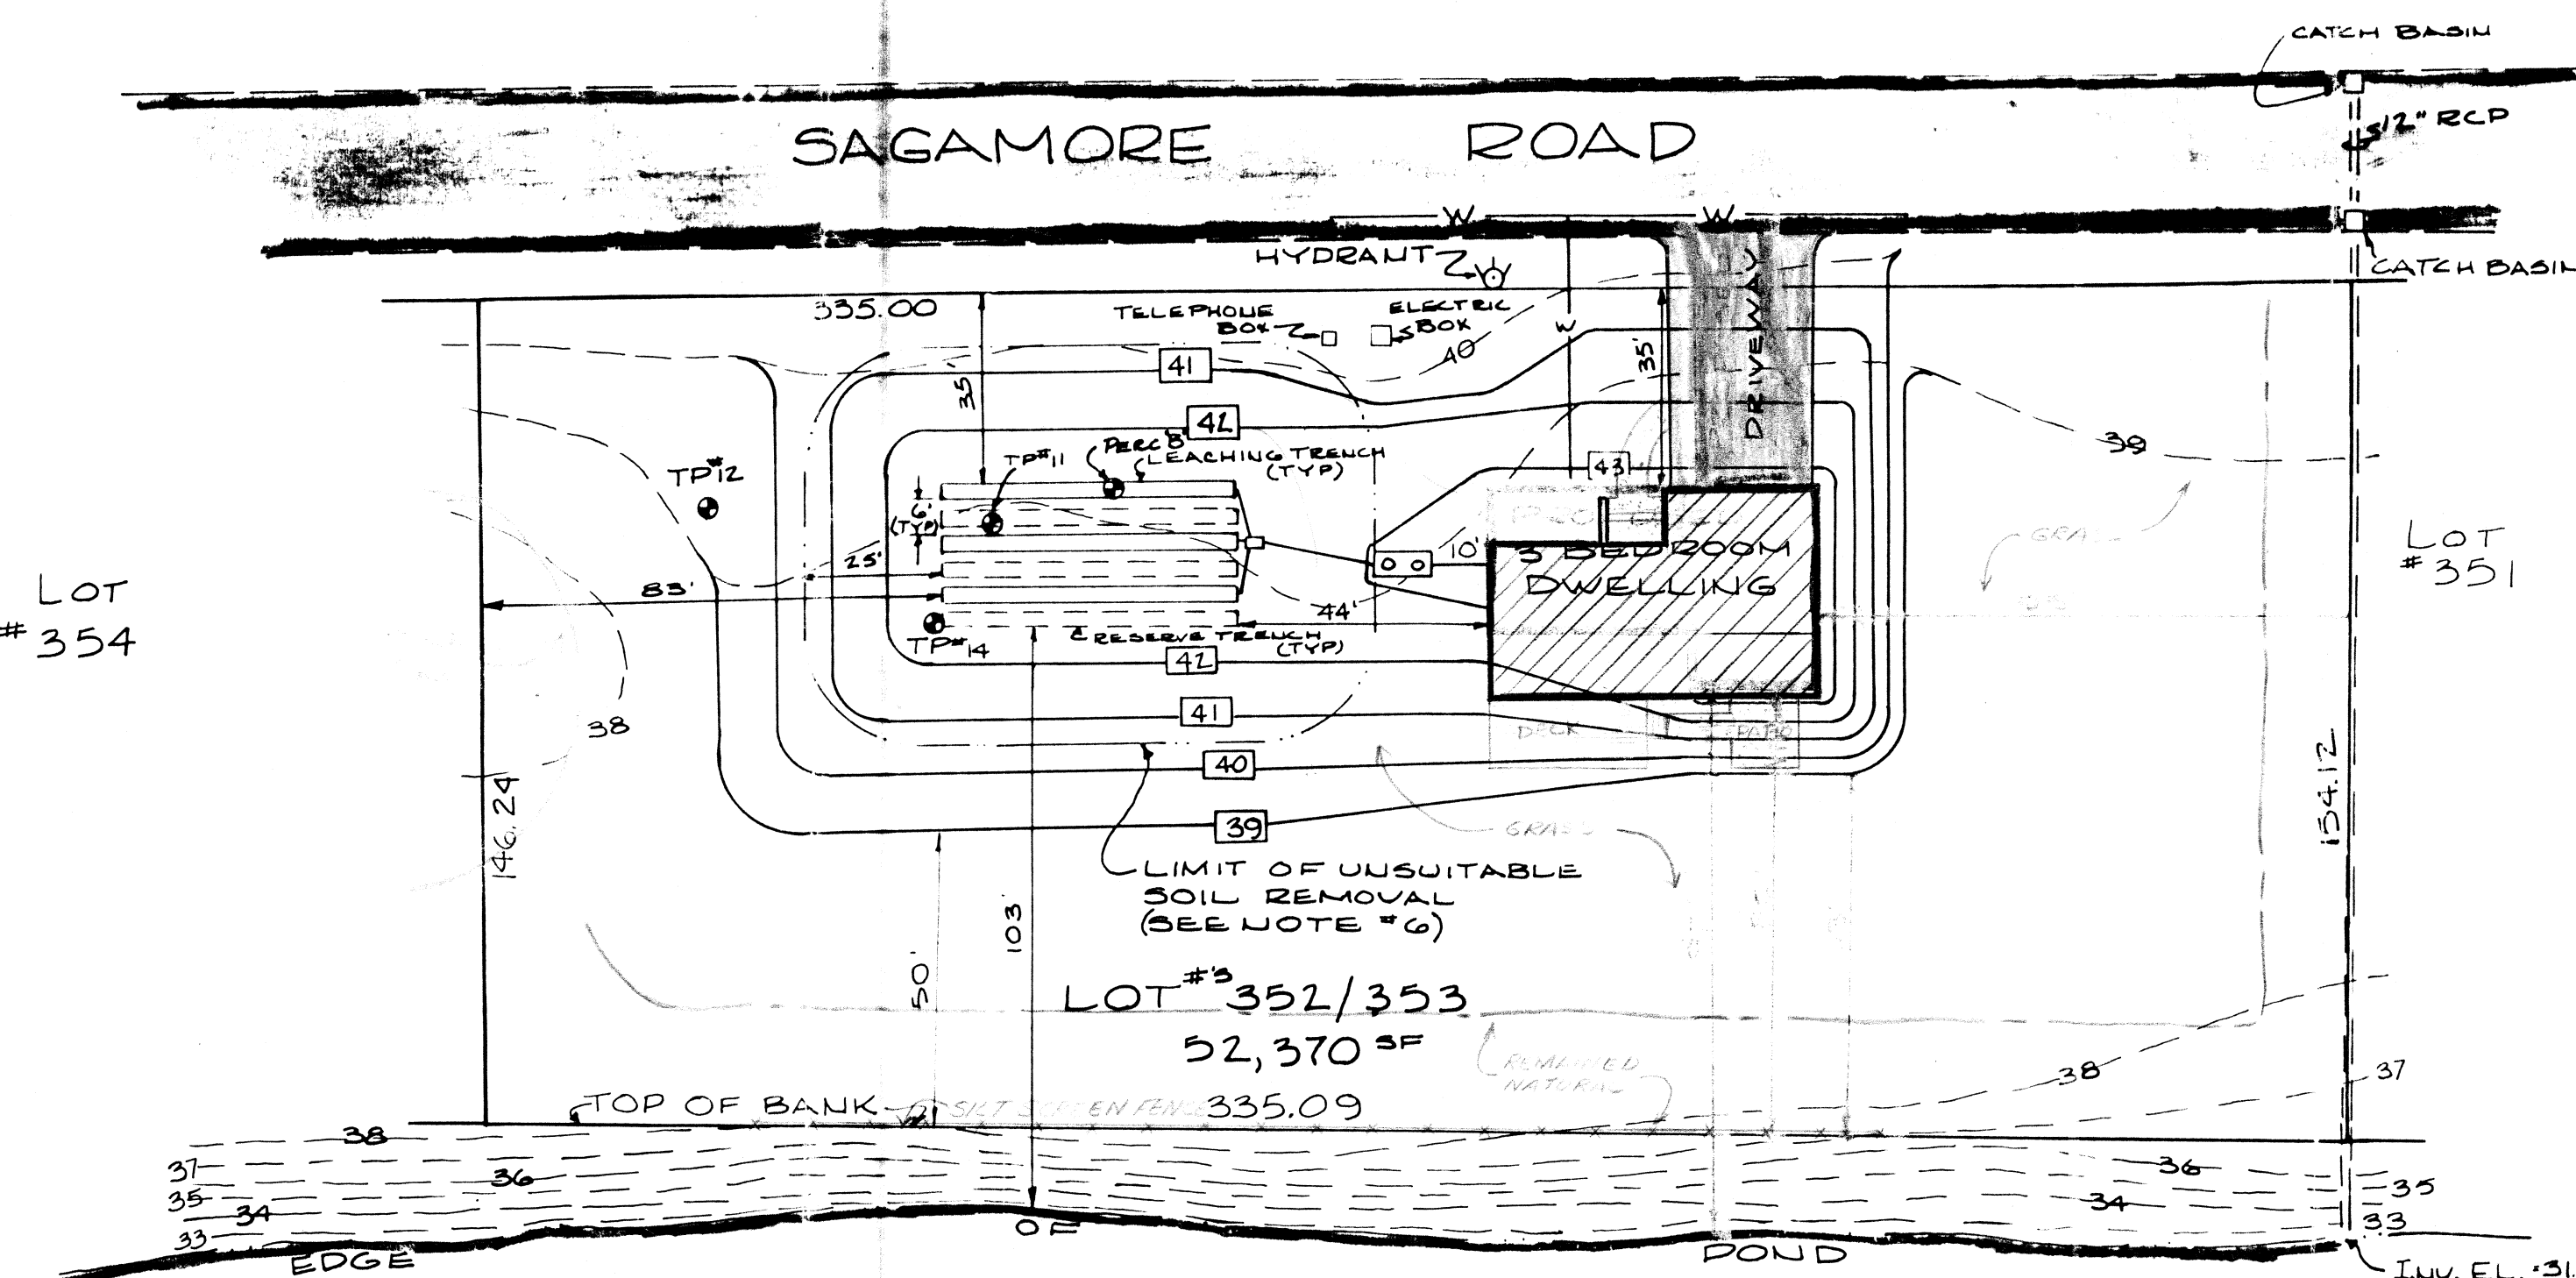 CATCH BASIN
12" RCP
SAGAMORE ROAD
W W
HYDRANT
CATCH BASIN
335.00
TELEPHONE
BOX
ELECTRIC
BOX
W
40
35'
35'
DRIVEWAY
41
42
43
39
PERC 'B'
TP#11
LEACHING TRENCH
(TYP)
TP#12
6'
(TYP)
25'
83'
10'
3 BEDROOM
DWELLING
44'
LOT
#354
LOT
#351
TP#14
RESERVE TRENCH
(TYP)
42
38
41
DECK
PATIO
40
39
GRASS
146.24
154.12
LIMIT OF UNSUITABLE
SOIL REMOVAL
(SEE NOTE #6)
50'
103'
LOT #'S 352/353
52,370 SF
REMAINED
NATURAL
38
37
TOP OF BANK
SILT SCREEN FENCE
335.09
38
37
36
35
34
33
36
35
34
33
EDGE OF POND
INV. EL. = 31.